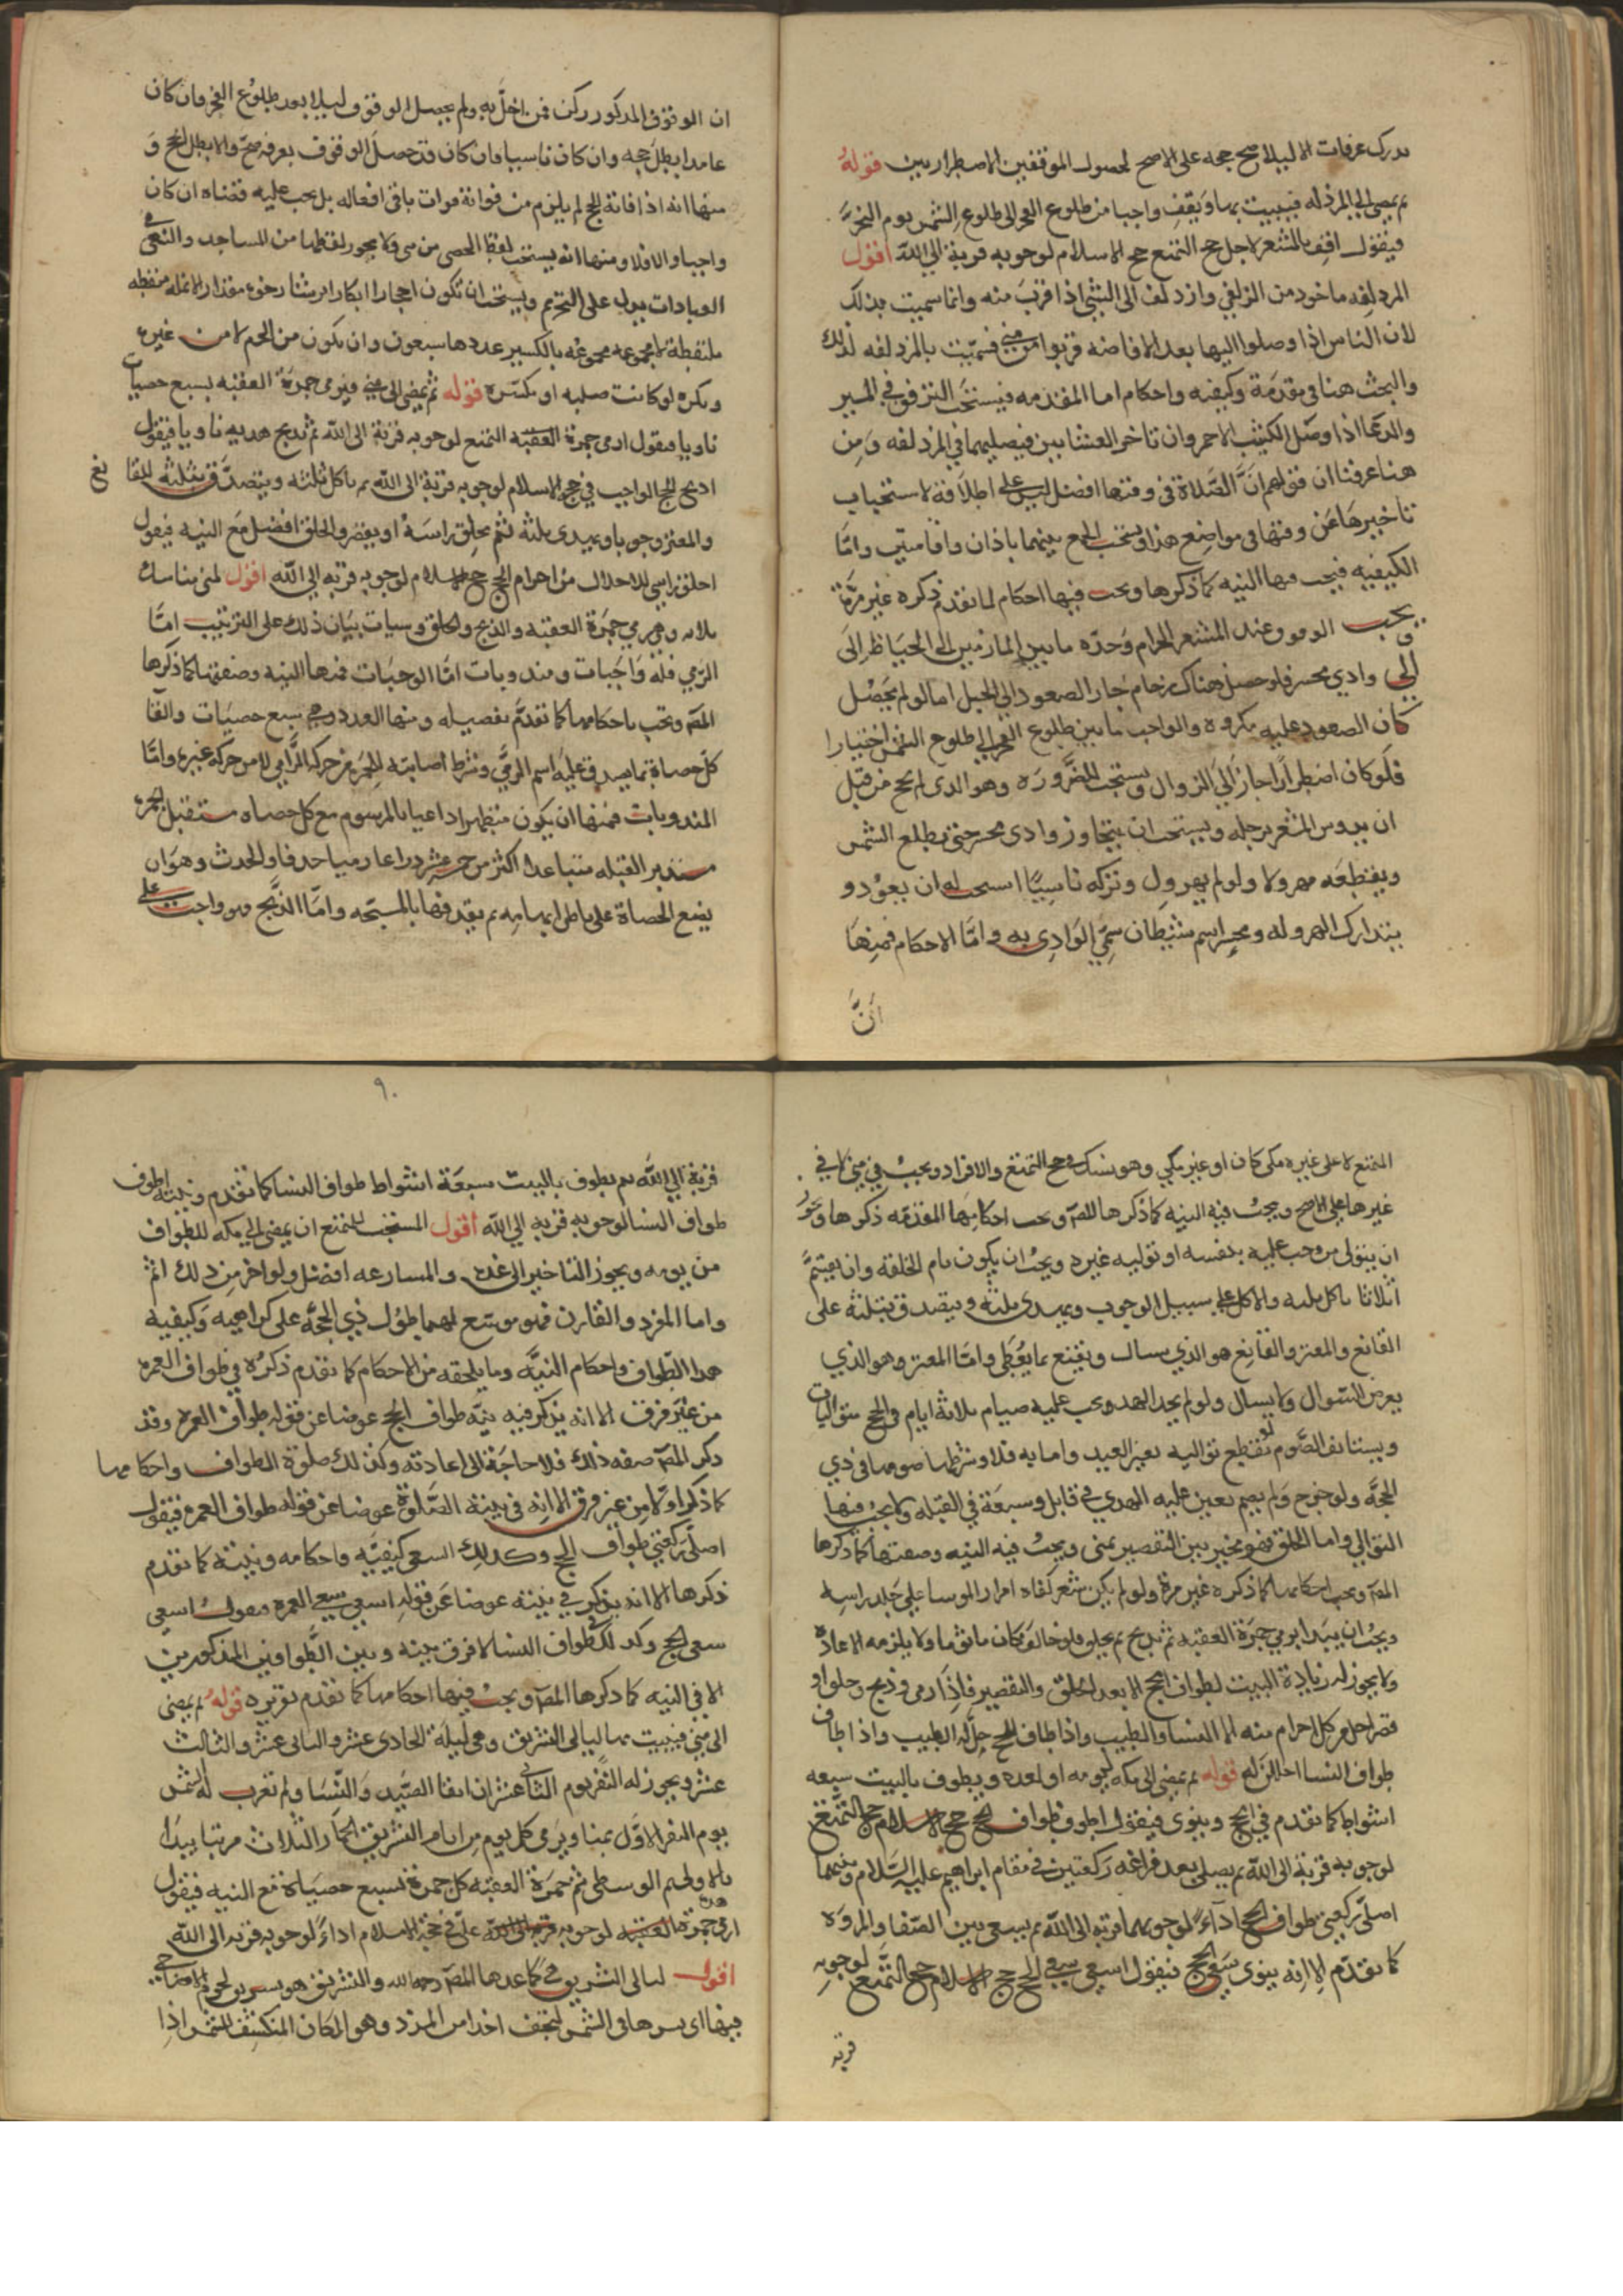 يدرك عرفات الا ليلا صح حجه على الاصح لحصول الموقفين الاضطراريين قوله
ثم يمضي الى المزدلفه فيبيت بها ويقف واجبا من طلوع الفجر الى طلوع الشمس يوم النحر
فيقول اقف بالمشعر لاجل حج التمتع حج الاسلام لوجوبه قربة الى الله اقول
المزدلفه ماخوذ من الزلفي وازدلف الى الشئ اذا قرب منه وانما سميت بذلك
لان الناس اذا وصلوا اليها بعد الافاضه قربوا من منى فسميت بالمزدلفه لذلك
والبحث هنا في مقدمة وكيفيه واحكام اما المقدمه فيستحب الترفق في المسير
والدعا اذا وصل الكثيب الاحمر وان تاخر العشايين فيصليهما في المزدلفه ومن
هنا عرفنا ان قولهم ان الصلاة في وقتها افضل ليس على اطلاقه لاستحباب
تاخيرها عن وقتها في مواضع هذا ويستحب الجمع بينهما باذان واقامتين واما
الكيفيه فيجب فيها النيه كما ذكرها ويجب فيها احكام لما تقدم ذكره غير مرة
ويجب الوقوف عند المشعر الحرام وحده ما بين المازمين الى الحياظ الى
الى وادي محسر فلو حصل هناك زحام جاز الصعود الى الجبل اما لو لم يحصل
كان الصعود عليه مكروه والواجب ما بين طلوع الفجر الى طلوع الشمس اختيارا
فلو كان اضطرارا جاز الى الزوال ويستحب للضرورة وهو الذي لم يحج من قبل
ان يدوس المشعر برجله ويستحب ان يتجاوز وادي محسر حتى تطلع الشمس
ويقطعه مهرولا ولو لم يهرول وتركه ناسيا استحب له ان يعود و
يتدارك الهروله ومحسر اسم شيطان سمي الوادي به واما الاحكام فمنها
ان
ان الوقوف المذكور ركن فمن اخل به ولم يحصل الوقوف ليلا بعد طلوع الفجر فان كان
عامدا بطل حجه وان كان ناسيا فان كان قد حصل الوقوف بعرفه صح والا بطل الحج و
منها انه اذا فاته الحج لم يلزم من فواته فوات باقي افعاله بل يجب عليه قضاه ان كان
واجبا والا فلا ومنها انه يستحب لقط الحصى من منى ولا يجوز لقطها من المساجد والنهي في
العبادات يدل على التحريم ويستحب ان تكون احجارا ابكارا برشا رخوه مقدار الانمله منقطه
ملتقطة لا مجموعه مجموعه بالكسير عددها سبعون وان يكون من الحرم لا من غيره
ويكره لو كانت صلبه او مكسره قوله ثم يمضي الى منى فيرمي جمرة العقبه بسبع حصيات
ناويا فيقول ارمي جمرة العقبه التمتع لوجوبه قربة الى الله ثم يذبح هديه ناويا فيقول
اذبح الحج الواجب في حج الاسلام لوجوبه قربة الى الله ثم ياكل ثلثه ويتصدق بثلثه للقا نع
والمعتر وجوبا ويهدي ثلثه ثم يحلق راسه او يقصر والحلق افضل مع النيه فيقول
احلق راسي للاحلال من احرام الحج حج الاسلام لوجوبه قربه الى الله اقول لمنى مناسك
ثلاثه وهي رمي جمرة العقبه والذبح والحلق وسيات بيان ذلك على الترتيب اما
الرمي فله واجبات ومندوبات اما الوجبات فمنها النيه وصفتها كما ذكرها
المصـ ويجب باحكامها كما تقدم تفصيله ومنها العدد وهي سبع حصيات والقا
كل حصاة بما يصدق عليه اسم الرمي وشرط اصابته للجمره من حركة الرامي لا من حركه غيره واما
المندوبات فمنها ان يكون متطهرا داعيا بالمرسوم مع كل حصاه مستقبل الجمره
مستدبر القبله متباعدا اكثر من خمسه عشر ذراعا رميا حذفا والحدث وهو ان
يضع الحصاة على باطن ابهامه ثم يقذفها بالسبحه واما الذبح فهو واجب على
المتمتع لا على غيره مكي كان او غير مكي وهو نسك وحج التمتع والافراد ويجب في منى لا في
غيرها على الاصح ويجب فيه النيه كما ذكرها المصـ ويجب احكامها المقدمه ذكرها ويجوز
ان يتولى من وجب عليه بنفسه او توليه غيره ويجب ان يكون تام الخلقه وان يقسم
اثلاثا ياكل ثلثه والاكل على سبيل الوجوب ويهدي ثلثه ويتصدق بثلثه على
القانع والمعتر والقانع هو الذي يسال ويقنع بما يعطى واما المعتر وهو الذي
يعرض السوال ولا يسال ولو لم يجد الهدي وجب عليه صيام ثلاثة ايام في الحج متواليات
ويستانف الصوم لو تقطع تواليه بغير العيد واما به فلا وشرطها صومها في ذي
الحجه ولو خرج ولم يصم تعين عليه الهدي في قابل وسبعة في القبله ولا يجب فيها
التوالي واما الحلق فهو مخير بين التقصير بمنى ويجب فيه النيه وصفتها كما ذكرها
المصـ ويجب احكامها كما ذكره غير مرة ولو لم يكن شعر كفاه امرار الموسا على جلد راسه
ويجب ان يبدا برمي جمرة العقبه ثم يذبح ثم يحلق فلو خالف كان ماثوما ولا يلزمه الاعاده
ولا يجوز له زيادة البيت لطواف الحج الا بعد الحلق والتقصير فاذا رمى وذبح وحلق او
قصر احل من كل احرام منه الا النسا والطيب واذا طاف للحج حل له الطيب واذا طاف
طواف النسا احللن له قوله ثم يمضي الى مكه ليومه او لغده ويطوف بالبيت سبعه
اشواط كما تقدم في الحج وينوى فيقول اطوف طواف الحج حج الاسلام حج التمتع
لوجوبه قربة الى الله ثم يصلي بعد فراغه ركعتين في مقام ابراهيم عليه السلام ونيتهما
اصلي ركعتي طواف الحج اداء لوجوبهما قربه الى الله ثم يسعى بين الصفا والمروه
كما تقدم الا انه ينوى سعي الحج فيقول اسعى سعي الحج حج الاسلام حج التمتع لوجوبه
قربه
٩٠
قربة الى الله ثم يطوف بالبيت سبعة اشواط طواف النسا كما تقدم ونيته اطوف
طواف النسا لوجوبه قربه الى الله اقول المستحب للمتمتع ان يمضي الى مكه للطواف
من يومه ويجوز التاخير الى غده والمسارعه افضل ولو اخر من ذلك اثم
واما المفرد والقارن فهو موسع لهما طول ذي الحجه على كراهيه وكيفيه
هذا الطواف واحكام النيه وما يلحقه من الاحكام كما تقدم ذكره في طواف العمره
من غير فرق الا انه يذكر فيه نيه طواف الحج عوضا عن قوله طواف العمره وقد
ذكر المصـ صفه ذلك فلا حاجة الى اعادته وكذلك صلوة الطواف واحكامها
كما ذكر اولا من غير فرق الا انه في نيته الصلوة عوضا عن قوله طواف العمره فيقول
اصلي ركعتي طواف الحج وكذلك السعي كيفيه واحكامه ونيته كما تقدم
ذكرها الا انه يذكر في نيته عوضا عن قوله اسعى سعي العمره فيقول اسعى
سعي الحج وكذلك في طواف النسا لا فرق بينه وبين الطوافين المذكورين
الا في النيه كما ذكرها المصـ ويجب فيها احكامها كما تقدم تقريره قوله ثم يمضي
الى منى فيبيت بها ليالي التشريق وهي ليلة الحادي عشر والثاني عشر والثالث
عشر ويجوز له النفر يوم الثاني عشر ان اتقا الصيد والنسا ولم تغرب له شمس
يوم النفر الاول بمنا ويرمي كل يوم من ايام التشريق الجمار الثلاث مرتبا يبدا
بالاولى ثم الوسطى ثم جمرة العقبه كل جمرة بسبع حصياة مع النيه فيقول
ارمي جمرة هذه العقبه لوجوبه قربه الى الله على في حجة الاسلام اداء لوجوبه قربه الى الله
اقول ليالى التشريق هي كما عدها المصـ رحمه الله والتشريق هو تشريق لحوم الاضاحي
فيها اى بسرها في الشمس لتجفف اخذا من المرد وهو المكان المنكشف للشمس اذا